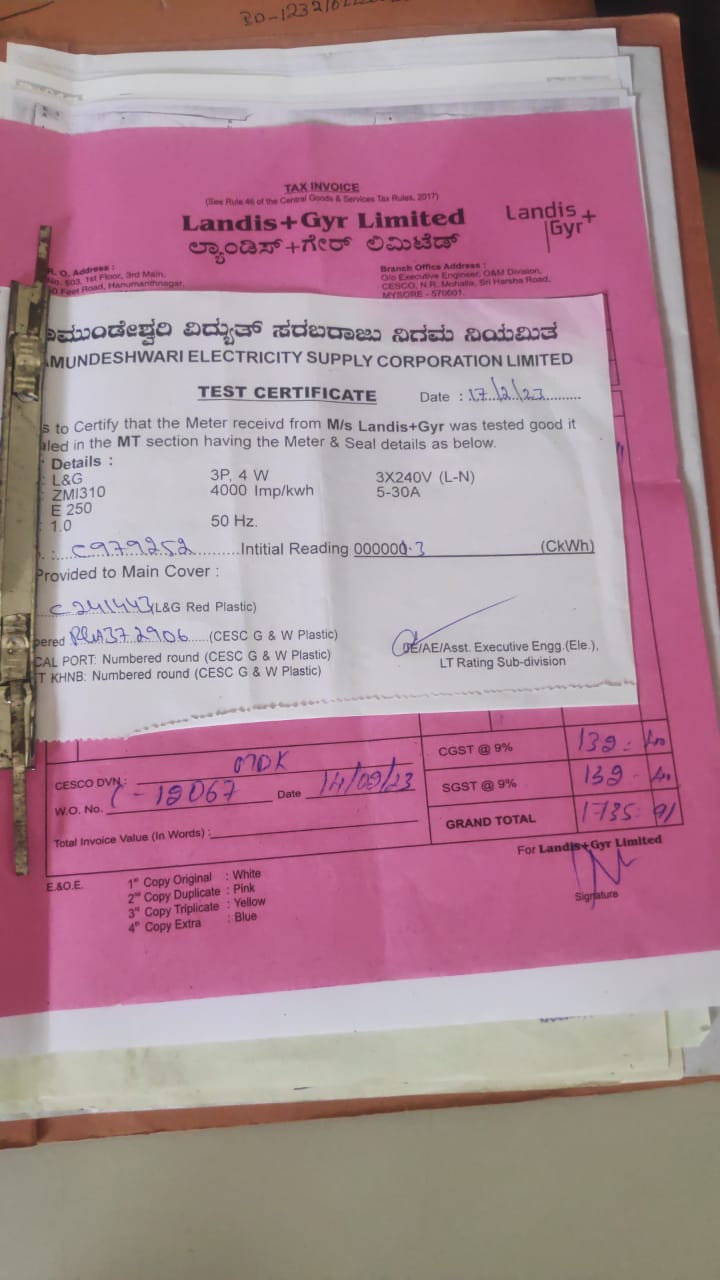 TAX INVOICE
(See Rule 46 of the Central Goods & Services Tax Rules, 2017)
Landis+Gyr Limited
ಲ್ಯಾಂಡಿಸ್+ಗೇರ್ ಲಿಮಿಟೆಡ್
Landis+
Gyr
R. O. Address :
No. 503, 1st Floor, 3rd Main,
Feet Road, Hanumanthnagar,
Branch Office Address :
O/o Executive Engineer, O&M Division,
CESCO, N.R. Mohalla, Sri Harsha Road,
MYSORE - 570001.
ಮುಂಡೇಶ್ವರಿ ವಿದ್ಯುತ್ ಸರಬರಾಜು ನಿಗಮ ನಿಯಮಿತ
MUNDESHWARI ELECTRICITY SUPPLY CORPORATION LIMITED
TEST CERTIFICATE Date : 17/2/23
s to Certify that the Meter receivd from M/s Landis+Gyr was tested good it
aled in the MT section having the Meter & Seal details as below.
Details :
: L&G 3P, 4 W 3X240V (L-N)
: ZMI310 4000 Imp/kwh 5-30A
E 250
: 1.0 50 Hz.
: C979252 Intitial Reading 000000.3 (CkWh)
Provided to Main Cover :
C 241443 (L&G Red Plastic)
bered 372906 (CESC G & W Plastic)
CAL PORT: Numbered round (CESC G & W Plastic)
T KHNB: Numbered round (CESC G & W Plastic)
/AE/Asst. Executive Engg.(Ele.),
LT Rating Sub-division
CGST @ 9% 132-40
SGST @ 9% 132-40
GRAND TOTAL 1735-91
CESCO DVN : MDK
W.O. No. C-12067 Date 14/02/23
Total Invoice Value (In Words) :
For Landis+Gyr Limited
Signature
E.&O.E.
1st Copy Original : White
2nd Copy Duplicate : Pink
3rd Copy Triplicate : Yellow
4th Copy Extra : Blue